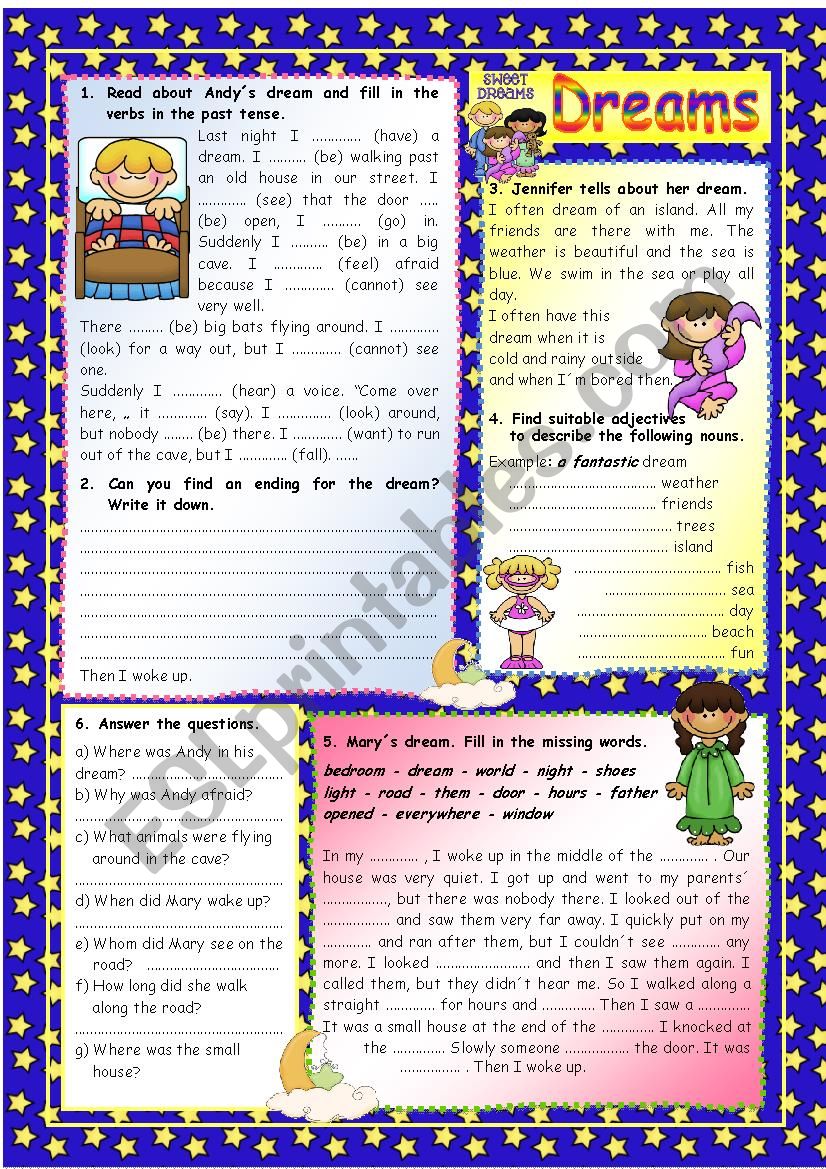 1. Read about Andy´s dream and fill in the
verbs in the past tense.
Last night I ............. (have) a
dream. I .......... (be) walking past
an old house in our street. I
............. (see) that the door .....
(be) open, I .......... (go) in.
Suddenly I .......... (be) in a big
cave. I ............. (feel) afraid
because I ............. (cannot) see
very well.
There ......... (be) big bats flying around. I .............
(look) for a way out, but I ............. (cannot) see
one.
Suddenly I ............. (hear) a voice. “Come over
here, „ it ............. (say). I .............. (look) around,
but nobody ........ (be) there. I ............. (want) to run
out of the cave, but I ............. (fall). ......
2. Can you find an ending for the dream?
Write it down.
Then I woke up.
SWEET
DREAMS
Dreams
3. Jennifer tells about her dream.
I often dream of an island. All my
friends are there with me. The
weather is beautiful and the sea is
blue. We swim in the sea or play all
day.
I often have this
dream when it is
cold and rainy outside
and when I´m bored then.
4. Find suitable adjectives
to describe the following nouns.
Example: a fantastic dream
....................................... weather
....................................... friends
........................................... trees
.......................................... island
....................................... fish
................................ sea
....................................... day
.................................. beach
....................................... fun
6. Answer the questions.
a) Where was Andy in his
dream? ........................................
b) Why was Andy afraid?
.......................................................
c) What animals were flying
around in the cave?
.......................................................
d) When did Mary wake up?
.......................................................
e) Whom did Mary see on the
road? ...................................
f) How long did she walk
along the road?
.......................................................
g) Where was the small
house?
5. Mary´s dream. Fill in the missing words.
bedroom - dream - world - night - shoes
light - road - them - door - hours - father
opened - everywhere - window
In my ............. , I woke up in the middle of the ............. . Our
house was very quiet. I got up and went to my parents´
................., but there was nobody there. I looked out of the
.................. and saw them very far away. I quickly put on my
............. and ran after them, but I couldn´t see ............. any
more. I looked ......................... and then I saw them again. I
called them, but they didn´t hear me. So I walked along a
straight ............. for hours and .............. Then I saw a ..............
It was a small house at the end of the .............. I knocked at
the .............. Slowly someone ................. the door. It was
................ . Then I woke up.
ESLprintables.com